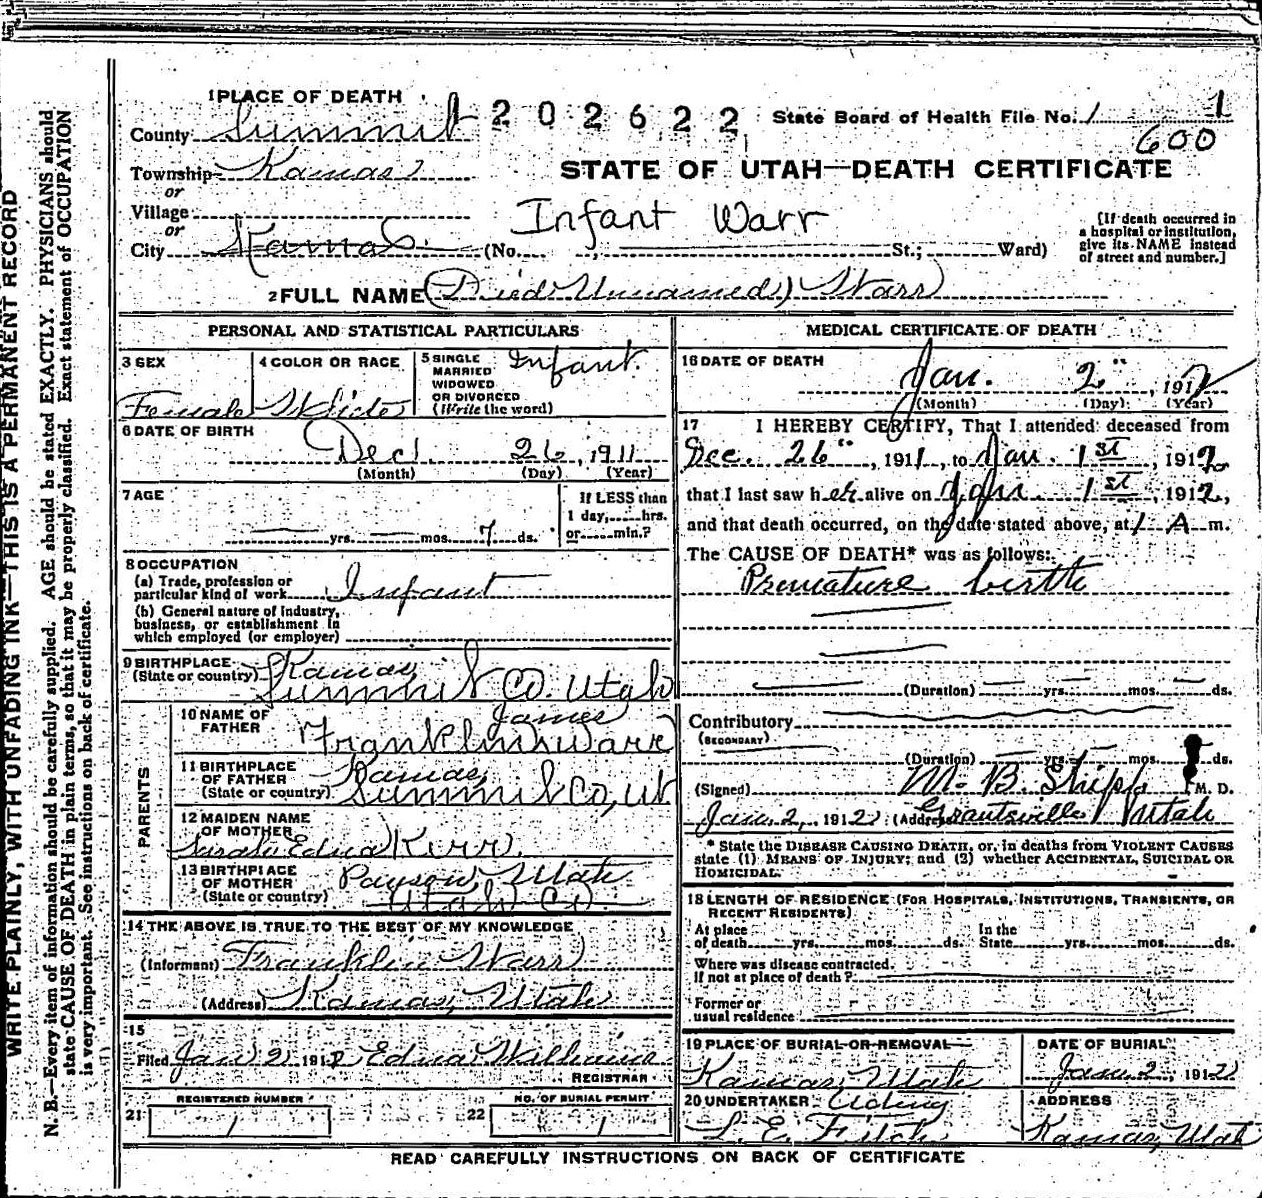 1 PLACE OF DEATH
1202622
State Board of Health File No. 1 1
600
County Summit
STATE OF UTAH—DEATH CERTIFICATE
Township Kamas
or
Village
or
City Kamas (No. St.; Ward)
Infant Warr
[If death occurred in
a hospital or institution,
give its NAME instead
of street and number.]
2 FULL NAME (Died Unnamed) Warr
PERSONAL AND STATISTICAL PARTICULARS
3 SEX
Female
4 COLOR OR RACE
White
5 SINGLE
MARRIED
WIDOWED
OR DIVORCED
(Write the word)
Infant.
6 DATE OF BIRTH
Dec. 26, 1911
(Month) (Day) (Year)
7 AGE
— yrs. — mos. 7 ds.
If LESS than
1 day, hrs.
or min.?
8 OCCUPATION
(a) Trade, profession or
particular kind of work Infant
(b) General nature of industry,
business, or establishment in
which employed (or employer)
9 BIRTHPLACE
(State or country) Kamas,
Summit Co. Utah
PARENTS
10 NAME OF
FATHER
James
Franklin Warr
11 BIRTHPLACE
OF FATHER
(State or country)
Kamas,
Summit Co, Ut
12 MAIDEN NAME
OF MOTHER
Sarah Edna Kerr
13 BIRTHPLACE
OF MOTHER
(State or country)
Payson, Utah
Utah Co.
14 THE ABOVE IS TRUE TO THE BEST OF MY KNOWLEDGE
(Informant) Franklin Warr
(Address) Kamas, Utah
15
Filed Jan 2 1912 Edna Williams
REGISTRAR
REGISTERED NUMBER
21 1
NO. OF BURIAL PERMIT
22 1
MEDICAL CERTIFICATE OF DEATH
16 DATE OF DEATH
Jan. 2" , 1912
(Month) (Day) (Year)
17 I HEREBY CERTIFY, That I attended deceased from
Dec. 26", 1911, to Jan. 1st, 1912
that I last saw her alive on Jan. 1st, 1912,
and that death occurred, on the date stated above, at 1 A m.
The CAUSE OF DEATH* was as follows:
Premature birth
(Duration) yrs. mos. ds.
Contributory
(SECONDARY)
(Duration) yrs. mos. ds.
(Signed) M. B. Shipp M. D.
Jan. 2, 1912 (Address) Grantsville Utah
* State the DISEASE CAUSING DEATH, or, in deaths from VIOLENT CAUSES
state (1) MEANS OF INJURY; and (2) whether ACCIDENTAL, SUICIDAL OR
HOMICIDAL.
18 LENGTH OF RESIDENCE (FOR HOSPITALS, INSTITUTIONS, TRANSIENTS, OR
RECENT RESIDENTS)
At place In the
of death yrs. mos. ds. State yrs. mos. ds.
Where was disease contracted.
If not at place of death?
Former or
usual residence
19 PLACE OF BURIAL OR REMOVAL
Kamas, Utah
DATE OF BURIAL
Jan. 2, 1912
20 UNDERTAKER Acting
L. E. Fitch
ADDRESS
Kamas, Utah
READ CAREFULLY INSTRUCTIONS ON BACK OF CERTIFICATE
WRITE PLAINLY, WITH UNFADING INK—THIS IS A PERMANENT RECORD
N. B.—Every item of information should be carefully supplied. AGE should be stated EXACTLY. PHYSICIANS should
state CAUSE OF DEATH in plain terms, so that it may be properly classified. Exact statement of OCCUPATION
is very important. See instructions on back of certificate.